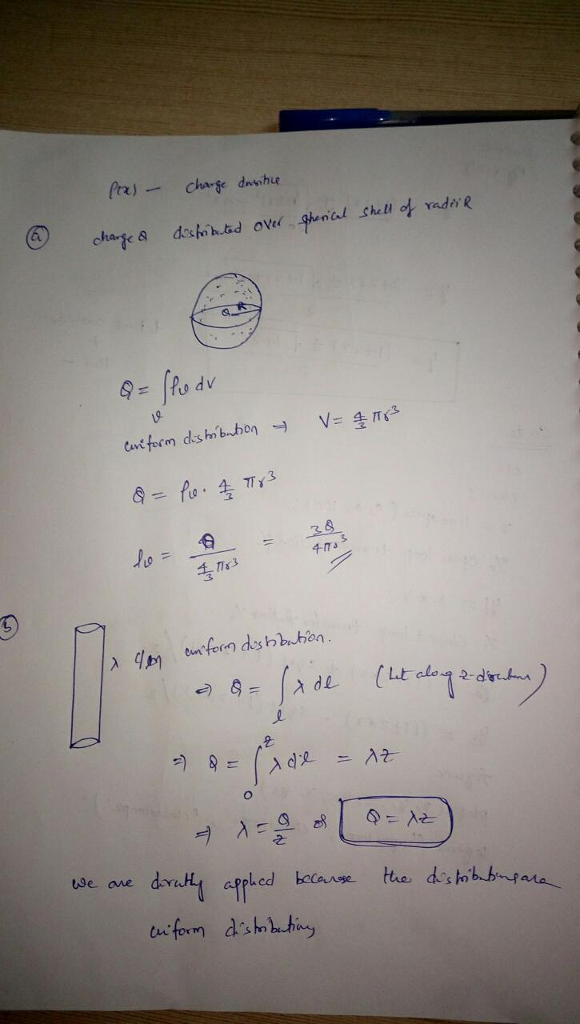 ρ(x) — charge densitie
(a) charge Q distributed over spherical shell of radii R
Q R
Q = ∫ ρv dv
v
uniform distribution → V = 4/3 πr³
Q = ρv . 4/3 πr³
ρv = Q / (4/3 πr³) = 3Q / 4πr³
λ C/m uniform distribution.
⇒ Q = ∫ λ dl (let along z-direction)
l
⇒ Q = ∫₀ᶻ λ dl = λz
⇒ λ = Q/z or Q = λz
we are directly applied because the distributing are
uniform distributing